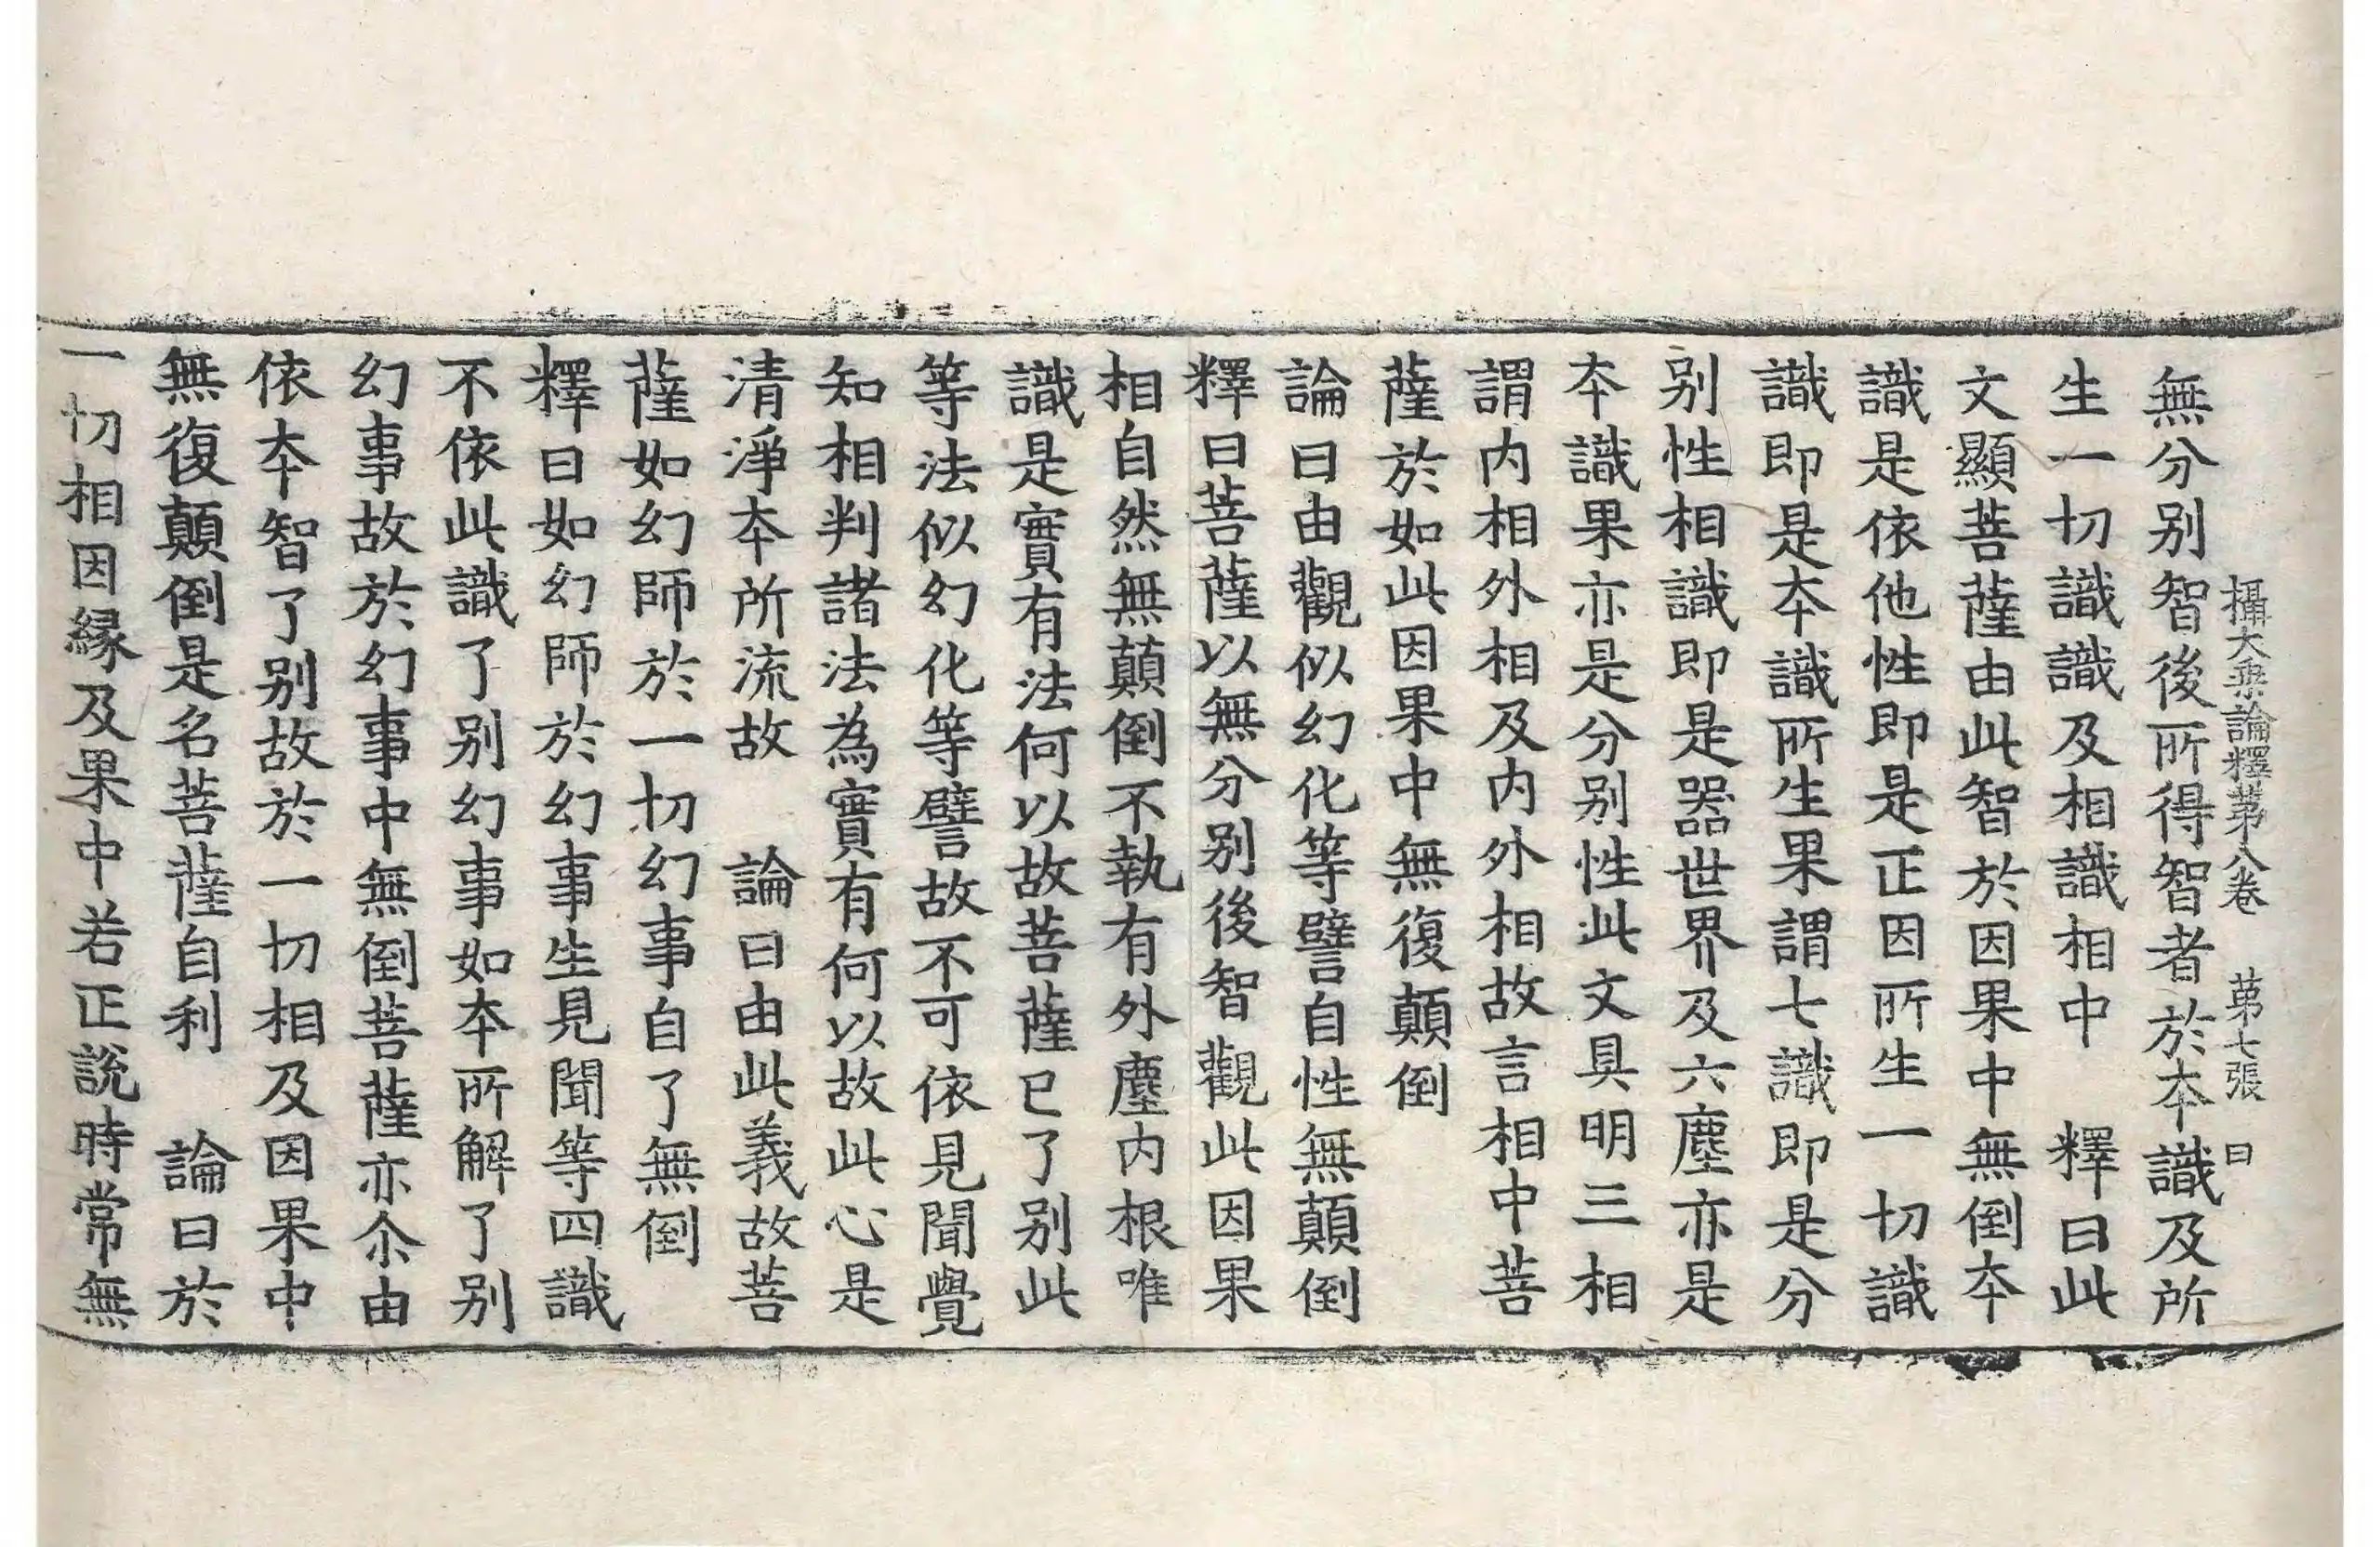 攝大乗論釋苐八卷　苐七張　曰
無分别智後所得智者於夲識及所
生一切識識及相識相中　釋曰此
文顯菩薩由此智於因果中無倒夲
識是依他性即是正因所生一切識
識即是夲識所生果謂七識即是分
别性相識即是器世界及六塵亦是
夲識果亦是分别性此文具明三相
謂内相外相及内外相故言相中菩
薩於如此因果中無復顛倒
論曰由觀似幻化等譬自性無顛倒
釋曰菩薩以無分别後智觀此因果
相自然無顛倒不執有外塵内根唯
識是實有法何以故菩薩已了别此
等法似幻化等譬故不可依見聞覺
知相判諸法為實有何以故此心是
清淨夲所流故　論曰由此義故菩
薩如幻師於一切幻事自了無倒
釋曰如幻師於幻事生見聞等四識
不依此識了别幻事如夲所解了别
幻事故於幻事中無倒菩薩亦尒由
依夲智了别故於一切相及因果中
無復顛倒是名菩薩自利　論曰於
一切相因縁及果中若正說時常無